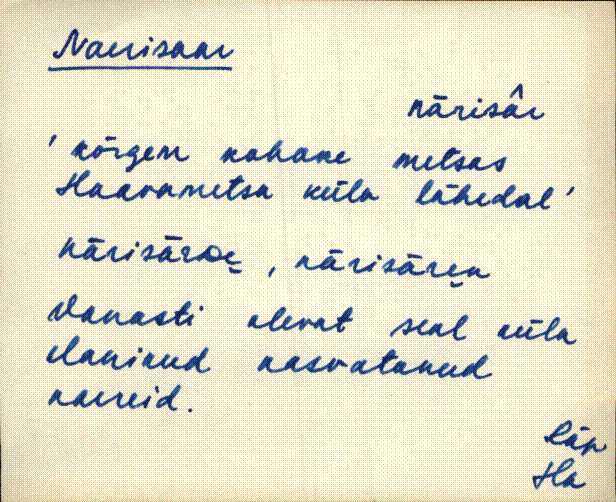 Naerisaar
nārisâr
'kõrgem kohake metsas
Haavametsa küla lähedal'
nārisārɒe̬, nārisāre̬n
Vanasti olevat seal küla
elanikud kasvatanud
naereid.
Räp
Ha